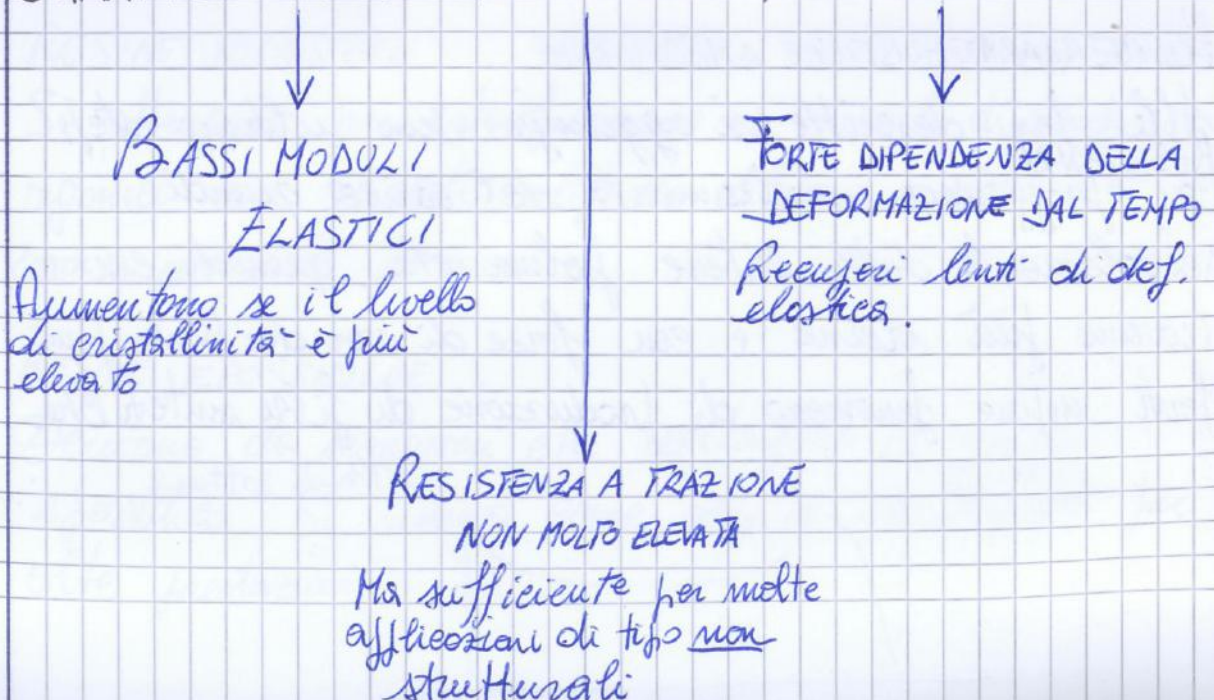 BASSI MODULI
ELASTICI
Aumentano se il livello
di cristallinità è più
elevato
FORTE DIPENDENZA DELLA
DEFORMAZIONE DAL TEMPO
Recuperi lenti di def.
elastica.
RESISTENZA A TRAZIONE
NON MOLTO ELEVATA
Ma sufficiente per molte
applicazioni di tipo non
strutturali